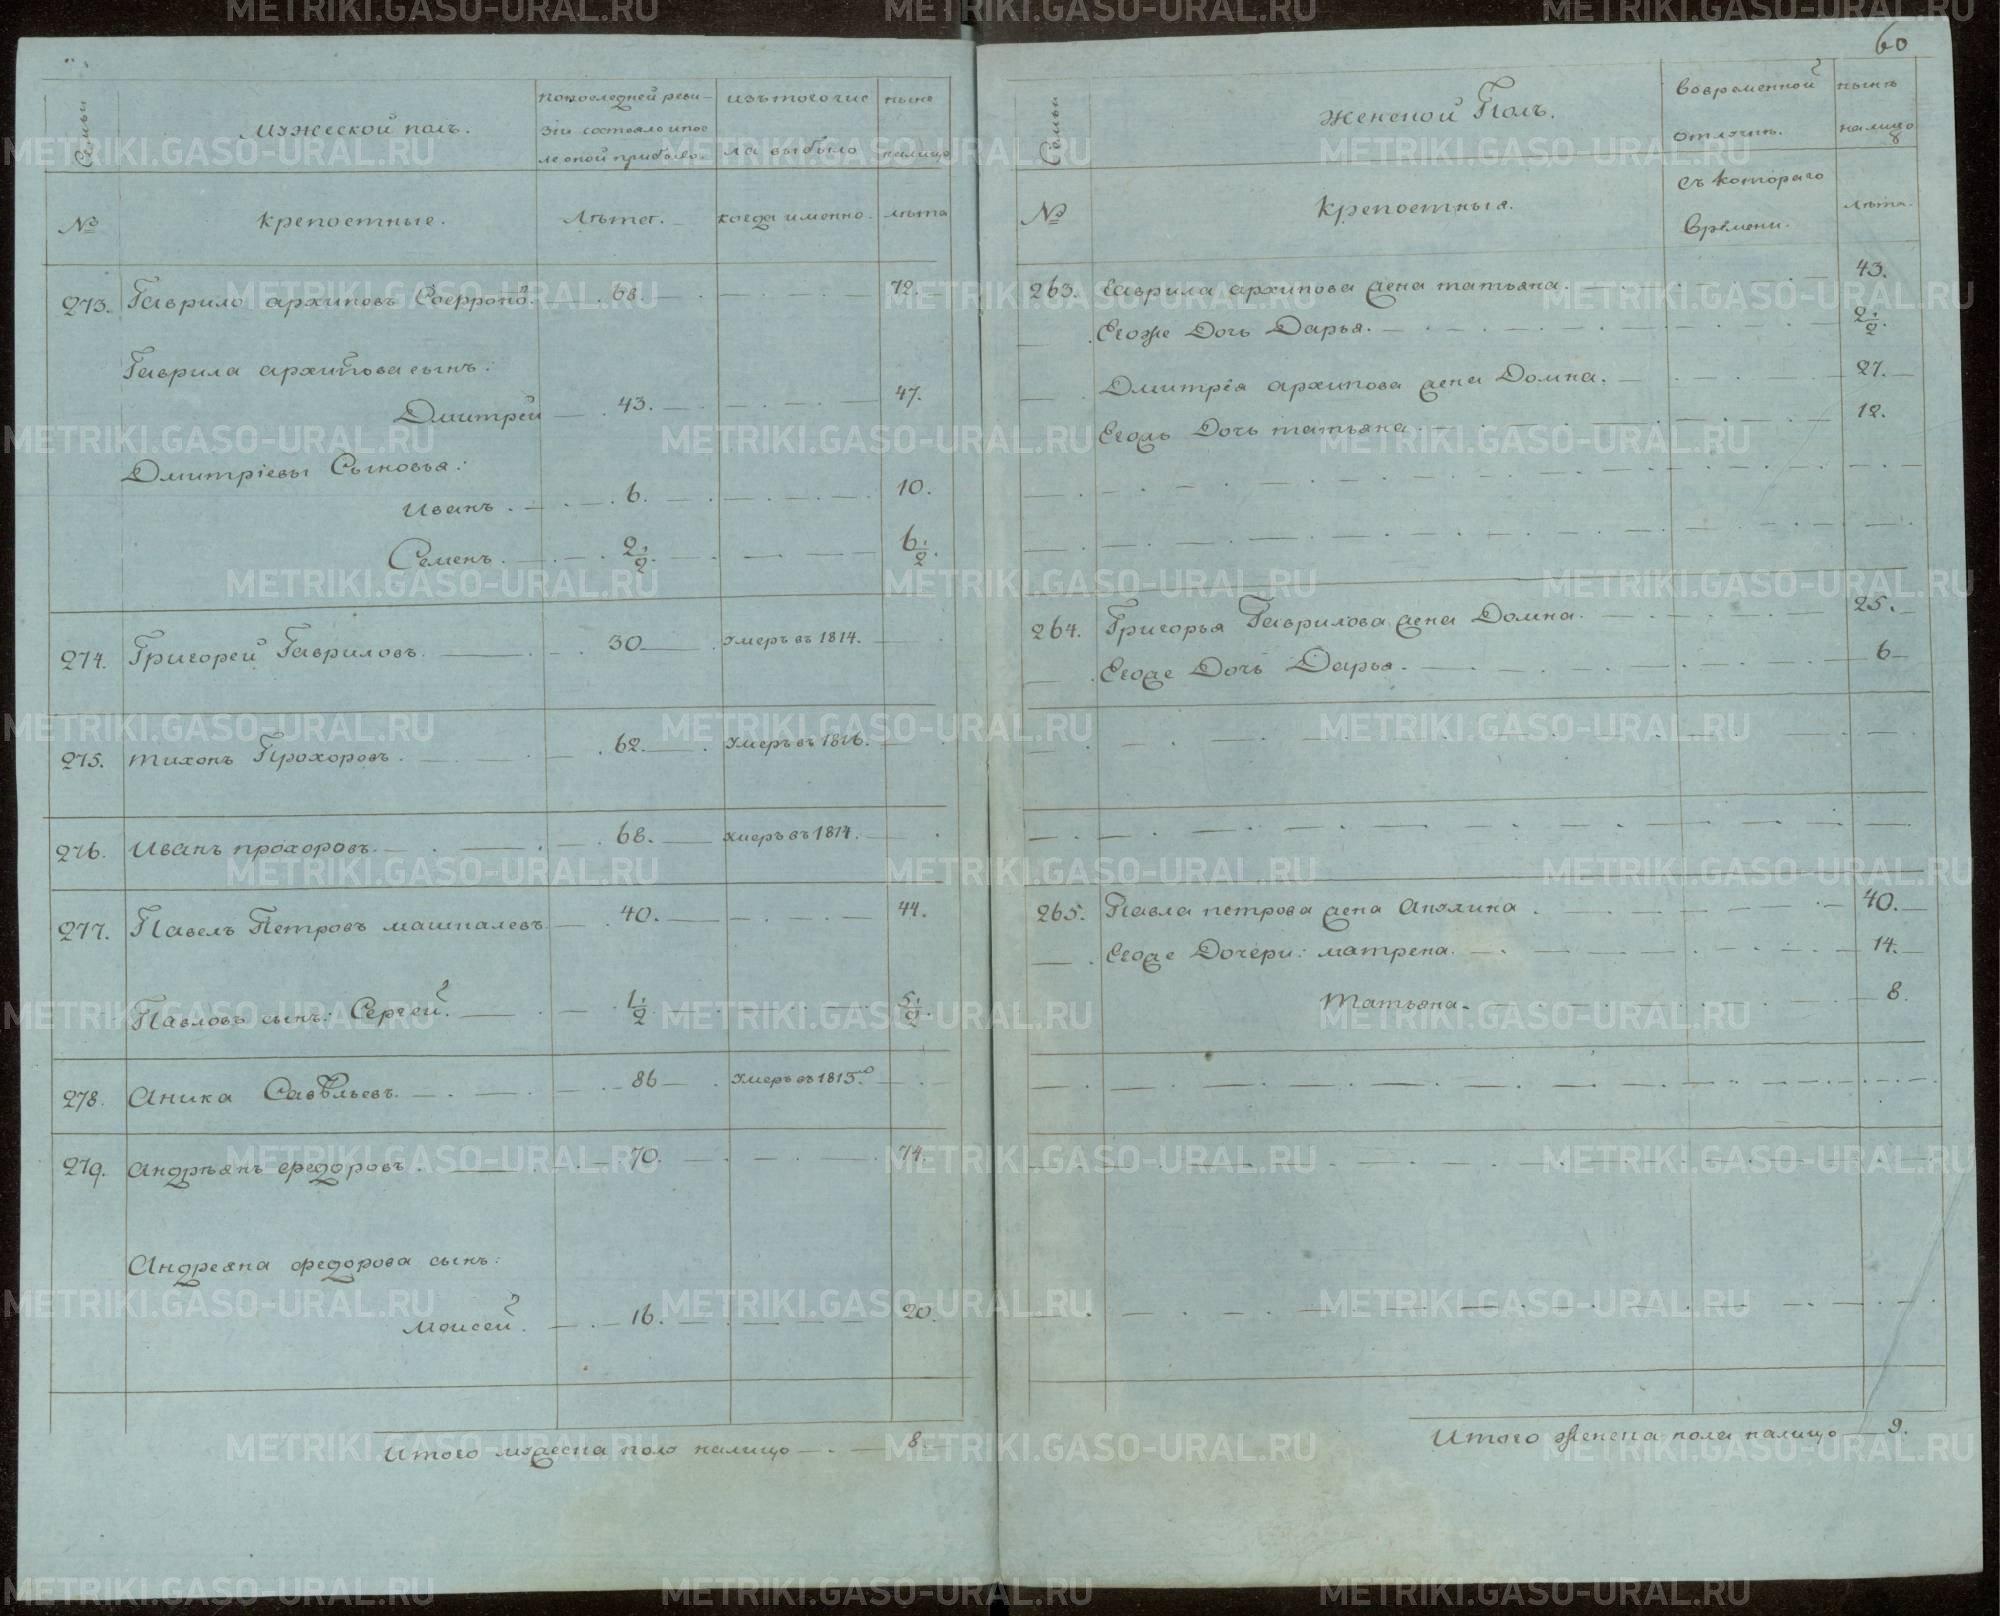 60
Семьи
Мужеской полъ.
попоследней реви-
зiи состояло ипос
ле оной прибыло.
изътогочис
ла выбыло
ныне
налицо
№
Крепостные.
Лътег.
когда имянно.
лъта
273. Гаврило архиповъ Сафроно. 68. 72.
Гаврила архипова сынъ:
Дмитрей 43. 47.
Дмитрiевы Сыновья:
Иванъ. 6. 10.
Семенъ. 2 1/2. 6 1/2.
274. Григорей Гавриловъ. 30 Умеръ въ 1814.
275. Тихонъ Прохоровъ. 62. Умеръ въ 1816.
276. Иванъ прохоровъ. 68. Умеръ въ 1814.
277. Павелъ Петровъ машпалевъ 40. 44.
Павловъ сынъ: Сергей. 1 1/2 5 1/2.
278. Аника Савѣльевъ. 86 Умеръ въ 1815.
279. Андрѣянъ федоровъ. 70. 74.
Андреяна федорова сынъ:
Моисей. 16. 20.
Итого мужеска пола налицо 8.
Семьи
Женской Полъ.
Вовременной
отлучки.
нынѣ
налицо
№
Крепостныя.
Съ котораго
Времени.
Лѣта.
263. Гаврила архипова жена татьяна. 43.
Егоже Дочь Дарья. 2 1/2.
Дмитрея архипова жена Домна. 27.
Егожъ Дочь татьяна. 12.
264. Григорья Гаврилова жена Домна. 25.
Егоже Дочь Дарья. 6
265. Павла петрова жена Акулина. 40.
Егоже Дочери: матрена. 14.
Татьяна. 8.
Итого женска пола налицо 9.
METRIKI.GASO-URAL.RU